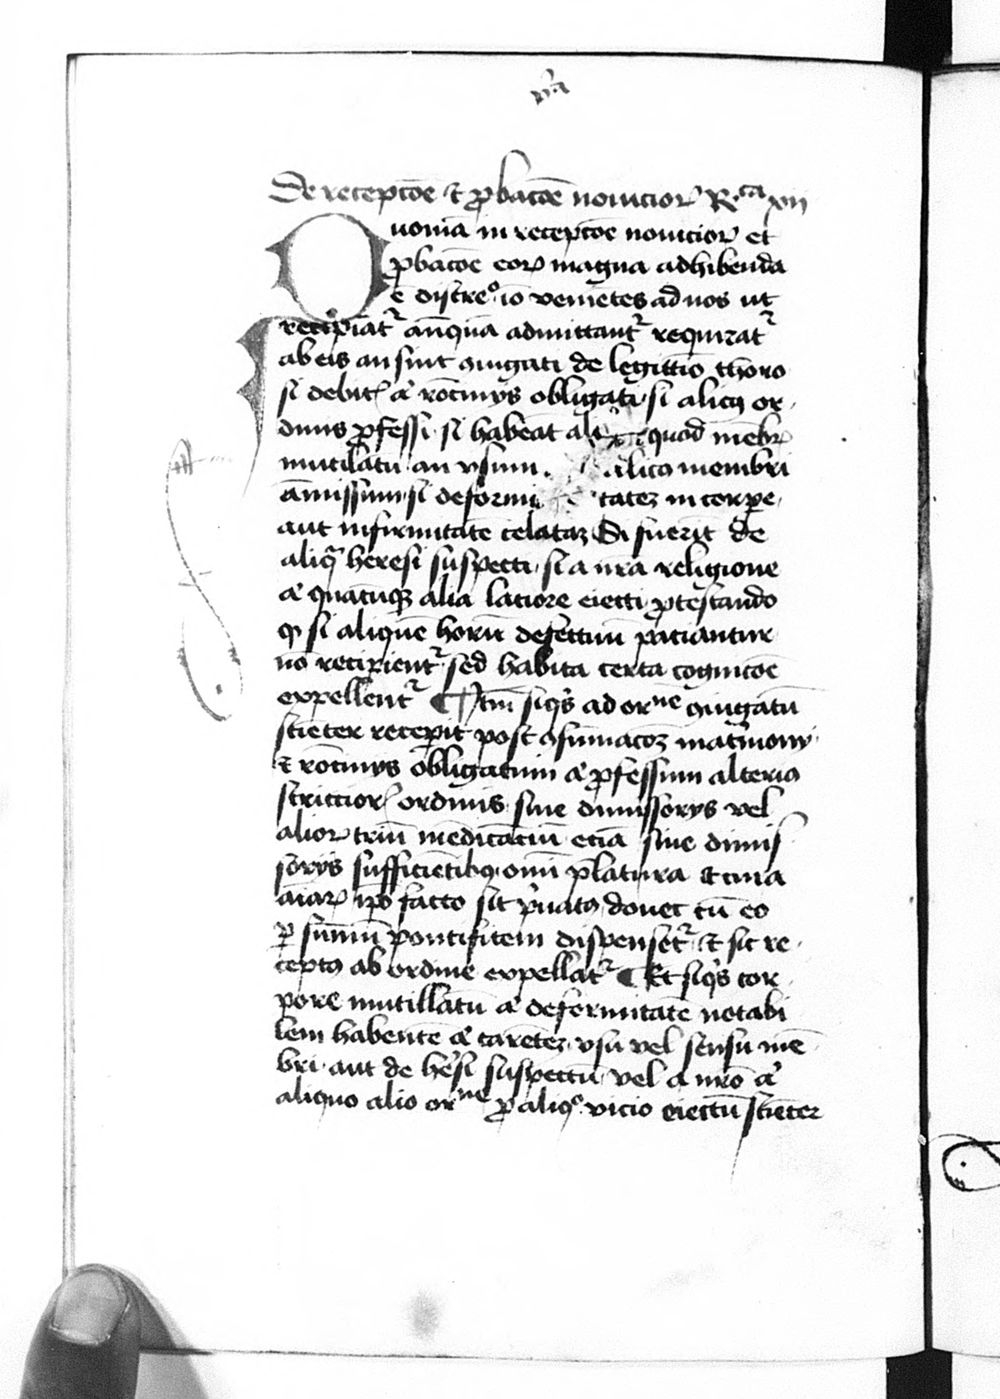 De receptoe et pbatoe novicior R^ca xii
Quonia in receptoe novicior et
pbatoe eor magna adhibenda
e discre^o io venietes ad nos ut
recipiat anqua admittant requirat
ab eis an sint giugati de legittio thoro
si debit a rociniis obligati si alicui or
dinis pfessi si habeat ali quod mebr
mutilatu an usum alicui membri
amissum si deformi tatez in corpe
aut infirmitate celataz Si fuerit de
aliqa heresi suspecti si a nra religione
a quatuq alia laciore eiecti ptestando
q si alique horu defectuu paciantur
no recipient sed habita certa cognicoe
expellent ¶ Ite siqs ad or^ne giugatu
scieter recepit post gsumacoz matimonii
et rociniis obligatum a pfessum alterius
striccior ordinis sine dimissoriis vel
alior triu medicaciu ecia sine dimis
soriis sufficietib omi platura et cura
aiar ipo facto sit pvatus donec cu eo
p sumu pontificem dispenset et sic re
ceptus ab ordine expellat ¶ Et siqs cor
pore mutillatu a deformitate notabi
lem habente a caretez usu vel sensu me
bri aut de hesi suspectu vel a nro a
aliquo alio or^ne p aliq^o vicio eiectu scieter